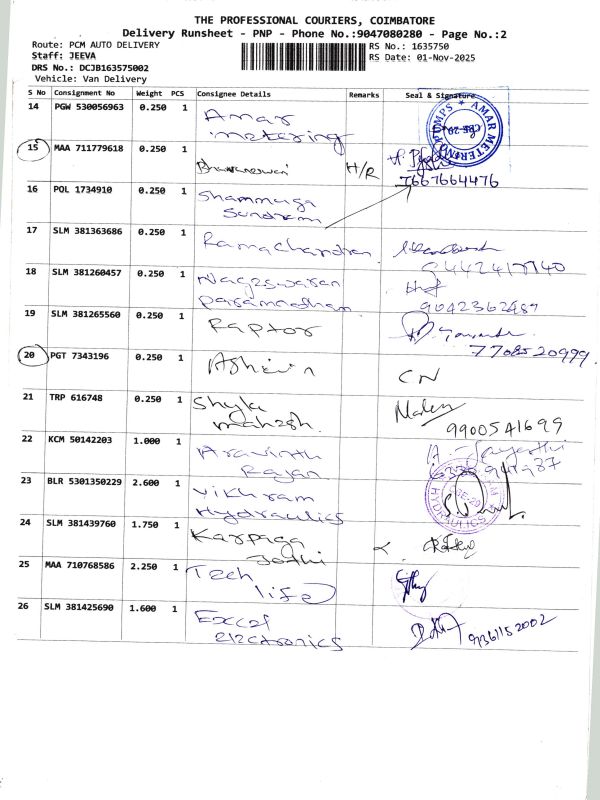 THE PROFESSIONAL COURIERS, COIMBATORE
Delivery Runsheet - PNP - Phone No.:9047080280 - Page No.:2
Route: PCM AUTO DELIVERY
Staff: JEEVA
DRS No.: DCJB163575002
Vehicle: Van Delivery
RS No.: 1635750
RS Date: 01-Nov-2025
S No Consignment No Weight PCS Consignee Details Remarks Seal & Signature
14 PGW 530056963 0.250 1 Amar
metering
AMAR METERING
CBE-29
15 MAA 711779618 0.250 1 H/R
7667664476
16 POL 1734910 0.250 1 Shanmuga
Sundram
17 SLM 381363686 0.250 1 Ramachandran
9442417740
18 SLM 381260457 0.250 1 Nageswaran
paramnadham
9042362487
19 SLM 381265560 0.250 1 Raptor
7708520999
20 PGT 7343196 0.250 1 Ashwin CN
21 TRP 616748 0.250 1 Shyla
mahesh.
9900541699
22 KCM 50142203 1.000 1 Aravinth
Rajan
23 BLR 5301350229 2.600 1 Vikhram
Hydraulics
HYDRAULICS
24 SLM 381439760 1.750 1 Karpaga
Jothi
25 MAA 710768586 2.250 1 Tech
life
26 SLM 381425690 1.600 1 Excel
electronics
9361152002